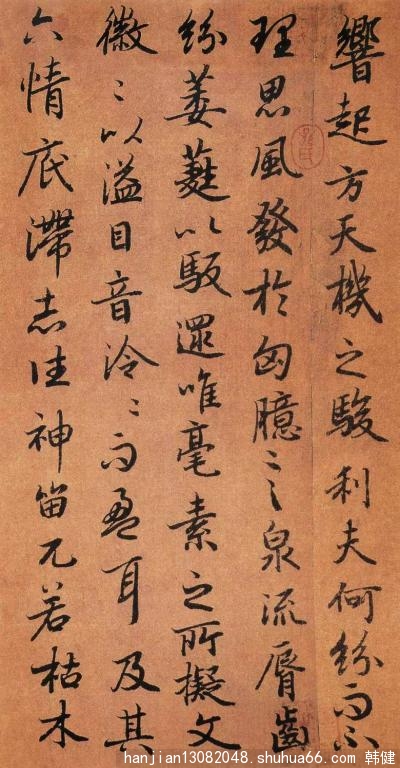 響起方天機之駿利夫何紛而不
理思風發於匈臆言泉流脣齒
紛萎蕤以馺遝唯毫素之所擬文
徽〻以溢目音泠〻而盈耳及其
六情底滯志往神留兀若枯木
hanjian13082048.shuhua66.com 韩健